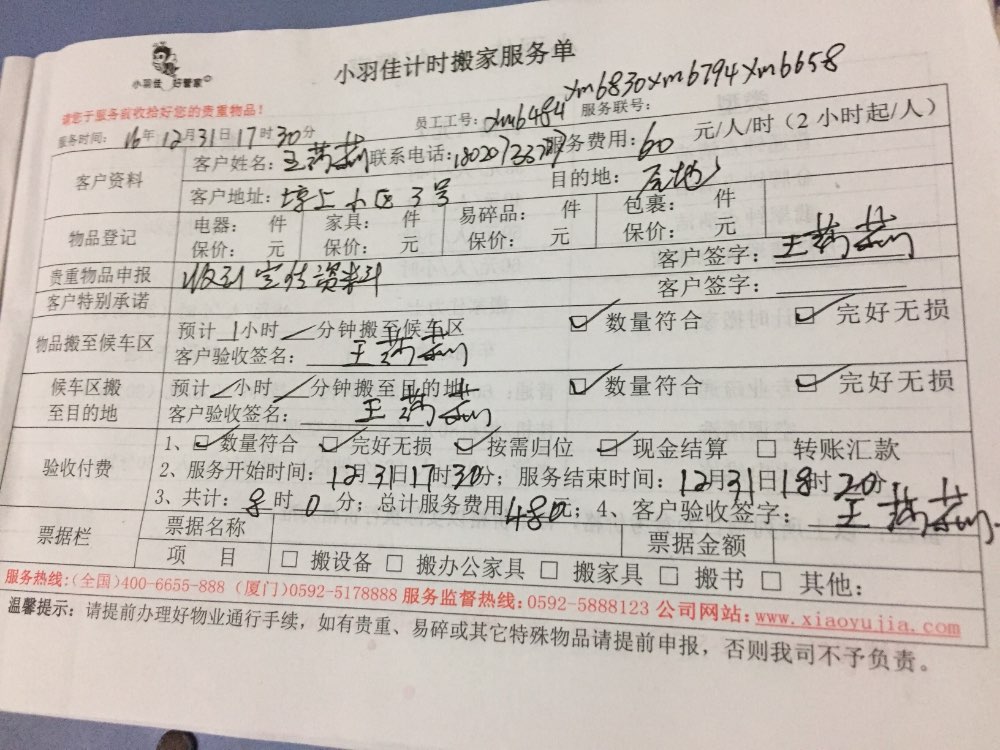 小羽佳 好管家
小羽佳计时搬家服务单
请您于服务前收拾好您的贵重物品!
服务时间: 16年12月31日17时30分 员工工号: xm6484 xm6830 xm6794 xm6658 服务联号:
客户资料 客户姓名: 王 联系电话: 服务费用: 60 元/人/时(2小时起/人)
客户地址: 埭上小区3号 目的地:
物品登记 电器: 件 家具: 件 易碎品: 件 包裹: 件
保价: 元 保价: 元 保价: 元 保价: 元
贵重物品申报 收到宣传资料 客户签字: 王
客户特别承诺 客户签字:
物品搬至候车区 预计 1小时 分钟搬至候车区 ☑ 数量符合 ☑ 完好无损
客户验收签名: 王
候车区搬至目的地 预计 小时 分钟搬至目的地 ☑ 数量符合 ☑ 完好无损
客户验收签名: 王
验收付费 1、☑ 数量符合 ☑ 完好无损 ☑ 按需归位 ☑ 现金结算 □ 转账汇款
2、服务开始时间: 12月31日17时30分; 服务结束时间: 12月31日18时20分
3、共计: 8时0分; 总计服务费用480元; 4、客户验收签字: 王
票据栏 票据名称 票据金额
项 目 □ 搬设备 □ 搬办公家具 □ 搬家具 □ 搬书 □ 其他:
服务热线:(全国)400-6655-888 (厦门)0592-5178888 服务监督热线: 0592-5888123 公司网站: www.xiaoyujia.com
温馨提示: 请提前办理好物业通行手续, 如有贵重、易碎或其它特殊物品请提前申报, 否则我司不予负责。